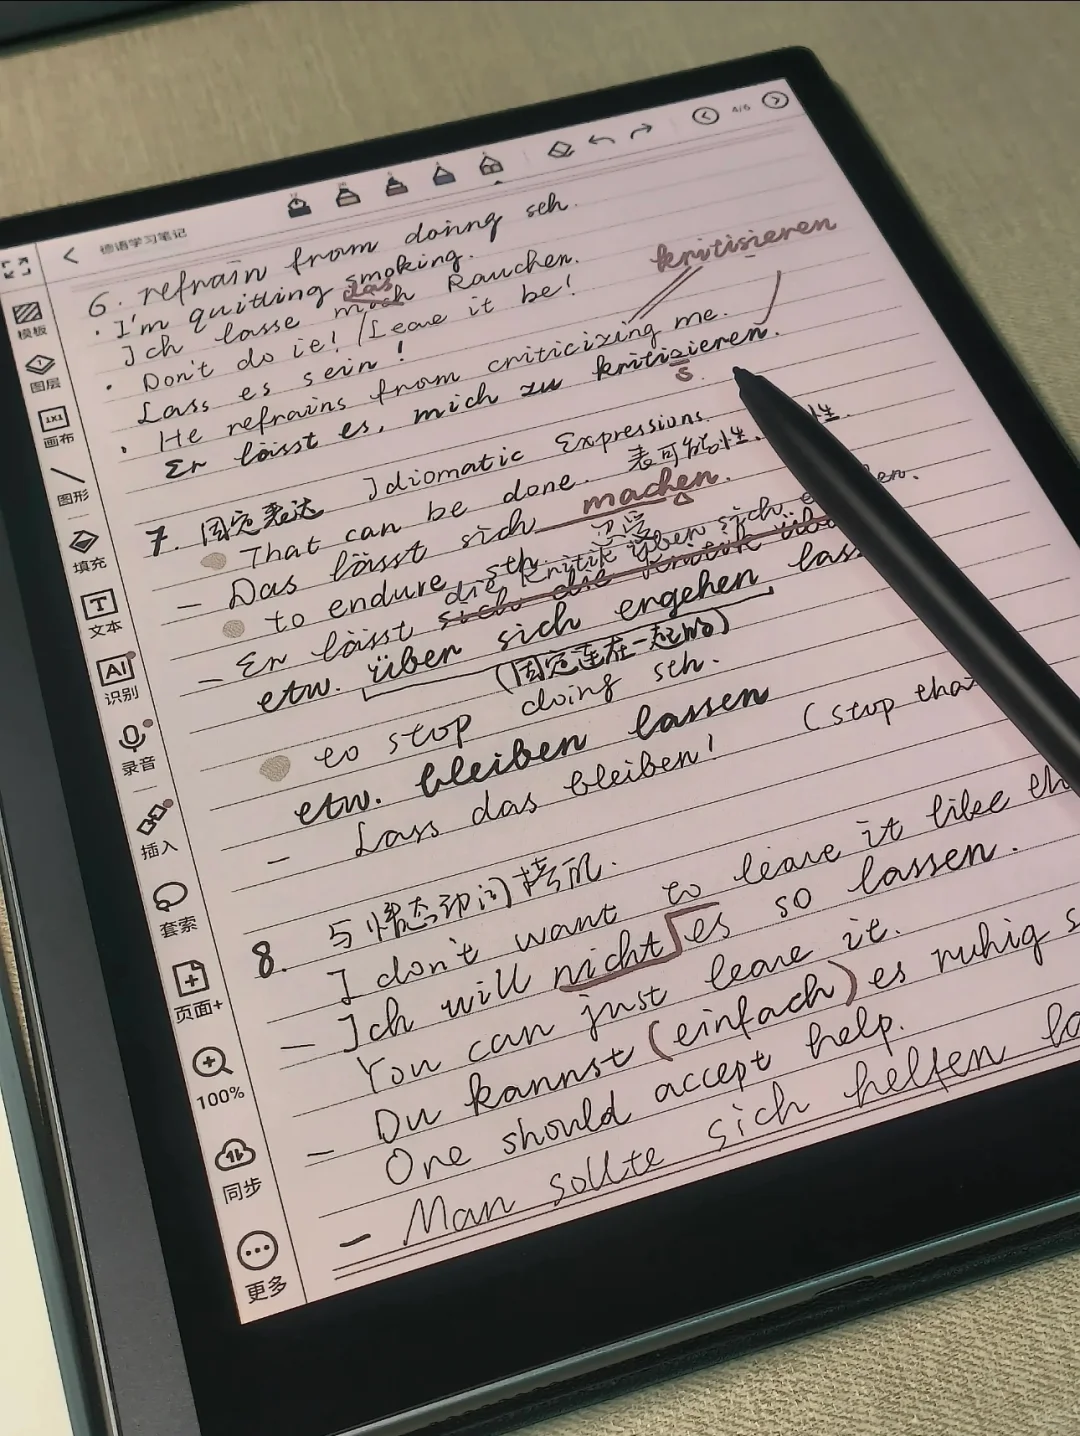 4/6
德语学习笔记
模板
图层
画布
图形
填充
文本
AI
识别
录音
插入
套索
页面+
100%
同步
更多
6. refrain from doing sth.
· I'm quitting smoking.
das
Ich lasse mich Rauchen.
· Don't do ie! /Leave it be!
Lass es sein!
kritisieren
· He refrains from criticizing me.
Er lässt es, mich zu kritizieren.
s
7. 固定表达 Idiomatic Expressions
That can be done. 表可能性、性.
- Das lässt sich machen.
to endure sth. 忍受
die Kritik über sich
- Er lässt sich die Kritik
etw. über sich ergehen lass
(固定连在一起的)
to stop doing sth.
etw. bleiben lassen
- Lass das bleiben! (stop tha
8. 与情态动词搭配.
I don't want to leave it like th
- Ich will nicht es so lassen.
You can just leave it.
- Du kannst (einfach) es ruhig s
One should accept help.
- Man sollte sich helfen la